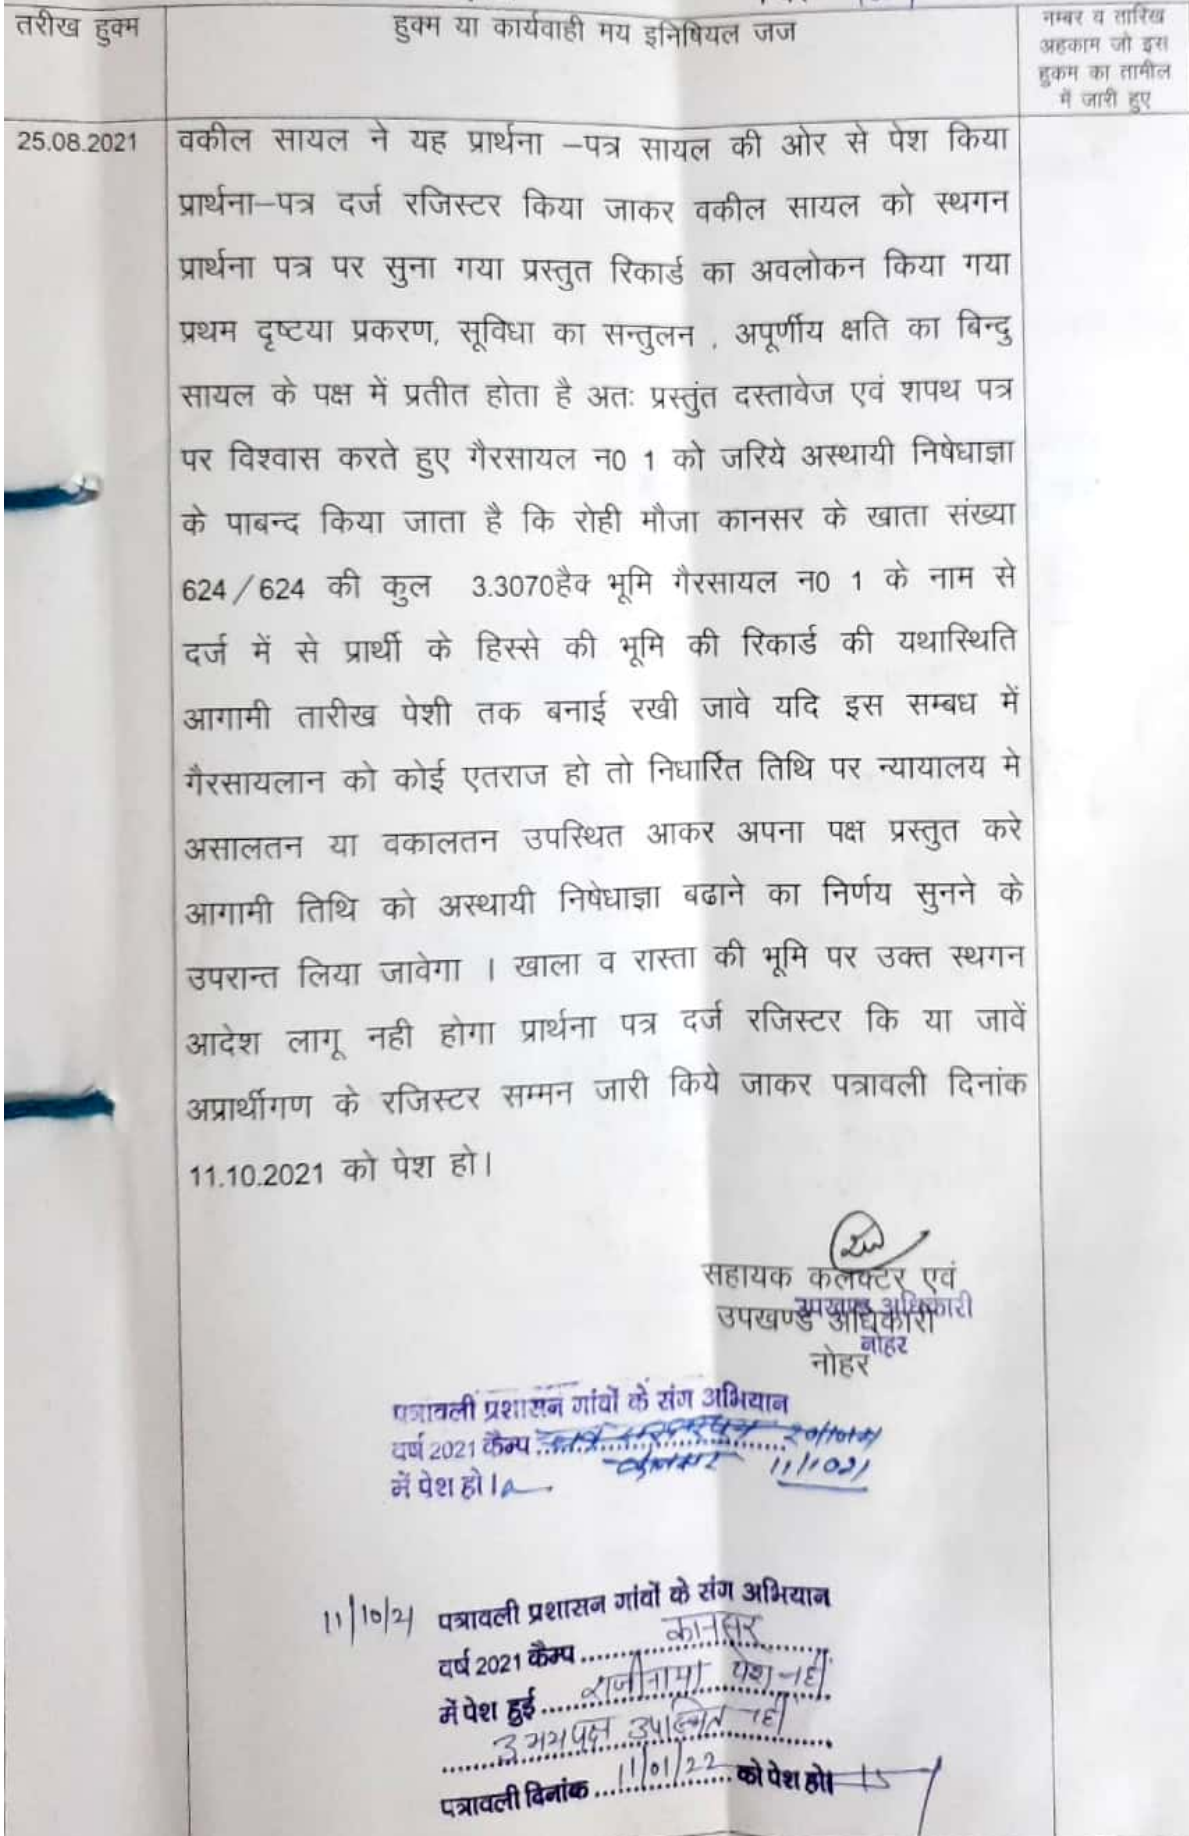 तरीख हुक्म
हुक्म या कार्यवाही मय इनिषियल जज
नम्बर व तारिख
अहकाम जो इस
हुकम का तामील
में जारी हुए
25.08.2021
वकील सायल ने यह प्रार्थना –पत्र सायल की ओर से पेश किया
प्रार्थना–पत्र दर्ज रजिस्टर किया जाकर वकील सायल को स्थगन
प्रार्थना पत्र पर सुना गया प्रस्तुत रिकार्ड का अवलोकन किया गया
प्रथम दृष्टया प्रकरण, सूविधा का सन्तुलन , अपूर्णीय क्षति का बिन्दु
सायल के पक्ष में प्रतीत होता है अतः प्रस्तुंत दस्तावेज एवं शपथ पत्र
पर विश्वास करते हुए गैरसायल न0 1 को जरिये अस्थायी निषेधाज्ञा
के पाबन्द किया जाता है कि रोही मौजा कानसर के खाता संख्या
624/624 की कुल 3.3070हैक भूमि गैरसायल न0 1 के नाम से
दर्ज में से प्रार्थी के हिस्से की भूमि की रिकार्ड की यथास्थिति
आगामी तारीख पेशी तक बनाई रखी जावे यदि इस सम्बध में
गैरसायलान को कोई एतराज हो तो निधार्रित तिथि पर न्यायालय मे
असालतन या वकालतन उपस्थित आकर अपना पक्ष प्रस्तुत करे
आगामी तिथि को अस्थायी निषेधाज्ञा बढाने का निर्णय सुनने के
उपरान्त लिया जावेगा । खाला व रास्ता की भूमि पर उक्त स्थगन
आदेश लागू नही होगा प्रार्थना पत्र दर्ज रजिस्टर कि या जावें
अप्रार्थीगण के रजिस्टर सम्मन जारी किये जाकर पत्रावली दिनांक
11.10.2021 को पेश हो।
सहायक कलक्टर एवं
उपखण्ड अधिकारी
नोहर
उपखण्ड अधिकारी
नोहर
पत्रावली प्रशासन गांवों के संग अभियान
वर्ष 2021 कैम्प
कानसर 11/10/21
में पेश हो।
11/10/21 पत्रावली प्रशासन गांवों के संग अभियान
वर्ष 2021 कैम्प ........ कानसर
में पेश हुई ..... राजीनामा पेश नहीं
उभयपक्ष उपस्थित नहीं
पत्रावली दिनांक ... 11/01/22 ... को पेश हो।